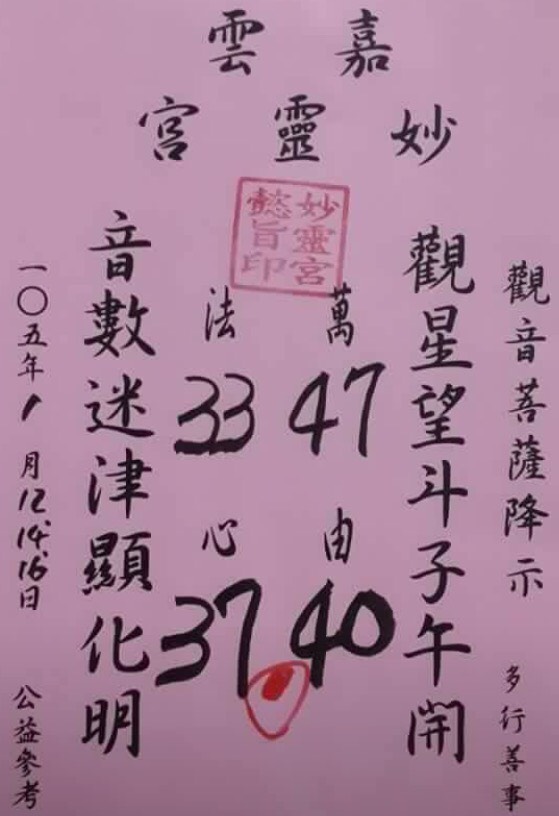 嘉雲
妙靈宮
妙靈宮
懿旨印
觀音菩薩降示 多行善事
觀星望斗子午開
萬法
47 33
由心
40 37
音數迷津顯化明
一〇五年1月12 14 16日 公益參考